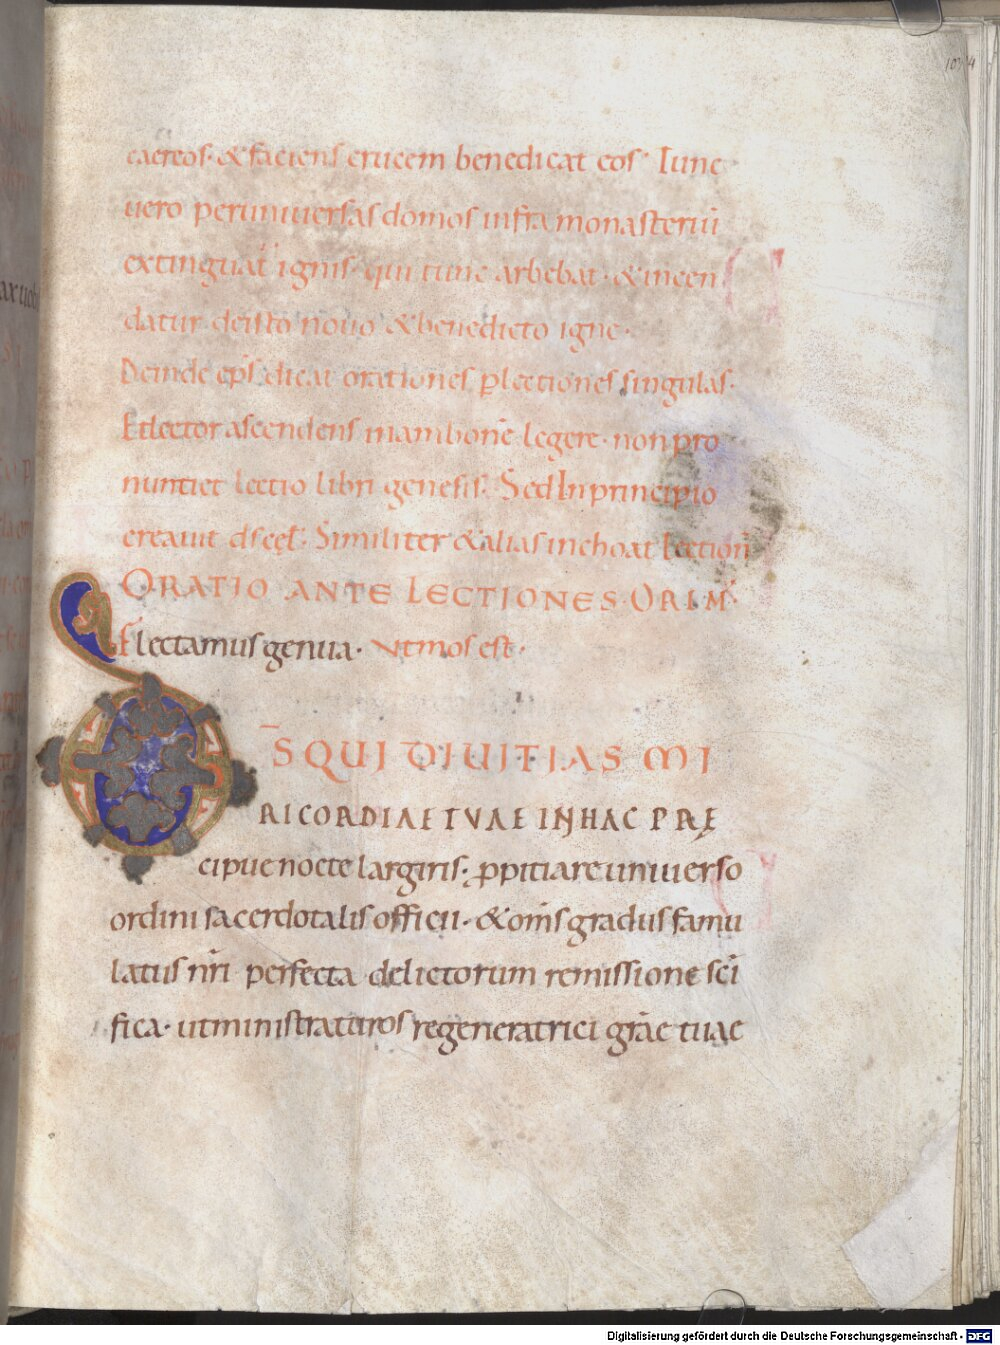 103 4
caereos· & faciens crucem benedicat eos· Tunc
uero peruniuersas domos infra monasteriū
extinguat̄ ignis· qui tunc ardebat· & incen
datur deisto nouo & benedicto igne·
Deinde ep̄s dicat orationes p̱ lectiones singulas·
Et lector ascendens inambonē legere· non pro
nuntiet lectio libri genesis· Sed In principio
creauit d̄s cęl̄· Similiter & alias inchoat lection̄
ORATIO ANTE LECTIONES·ORIM̄·
Flectamus genua· Vt mos est·
D̄S QUI DIUITIAS MI
RICORDIAE TVAE IN HAC PRĘ
cipue nocte largiris· ꝓpitiare uniuerso
ordini sacerdotalis officii· & om̄s gradus famu
latus nr̄i perfecta delictorum remissione sc̄i
fica· ut ministraturos regeneratrici gr̄ae tuae
Digitalisierung gefördert durch die Deutsche Forschungsgemeinschaft - DFG